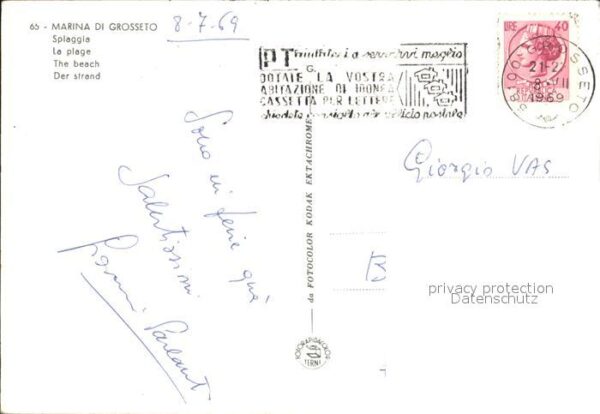 65 - MARINA DI GROSSETO
Spiaggia
La plage
The beach
Der strand
8-7-69
PT aiutateci a servirvi meglio
DOTATE LA VOSTRA
ABITAZIONE DI IDONEA
CASSETTA PER LETTERE
chiedete consiglio all'ufficio postale
LIRE 40
GROSSETO
21-2
8-VII
1969
Sono in ferie qua
Salutissimi
Gianni
da FOTOCOLOR KODAK EKTACHROME
FOTORAPIDACOLOR
TERNI
Giorgio VAS
B
privacy protection
Datenschutz